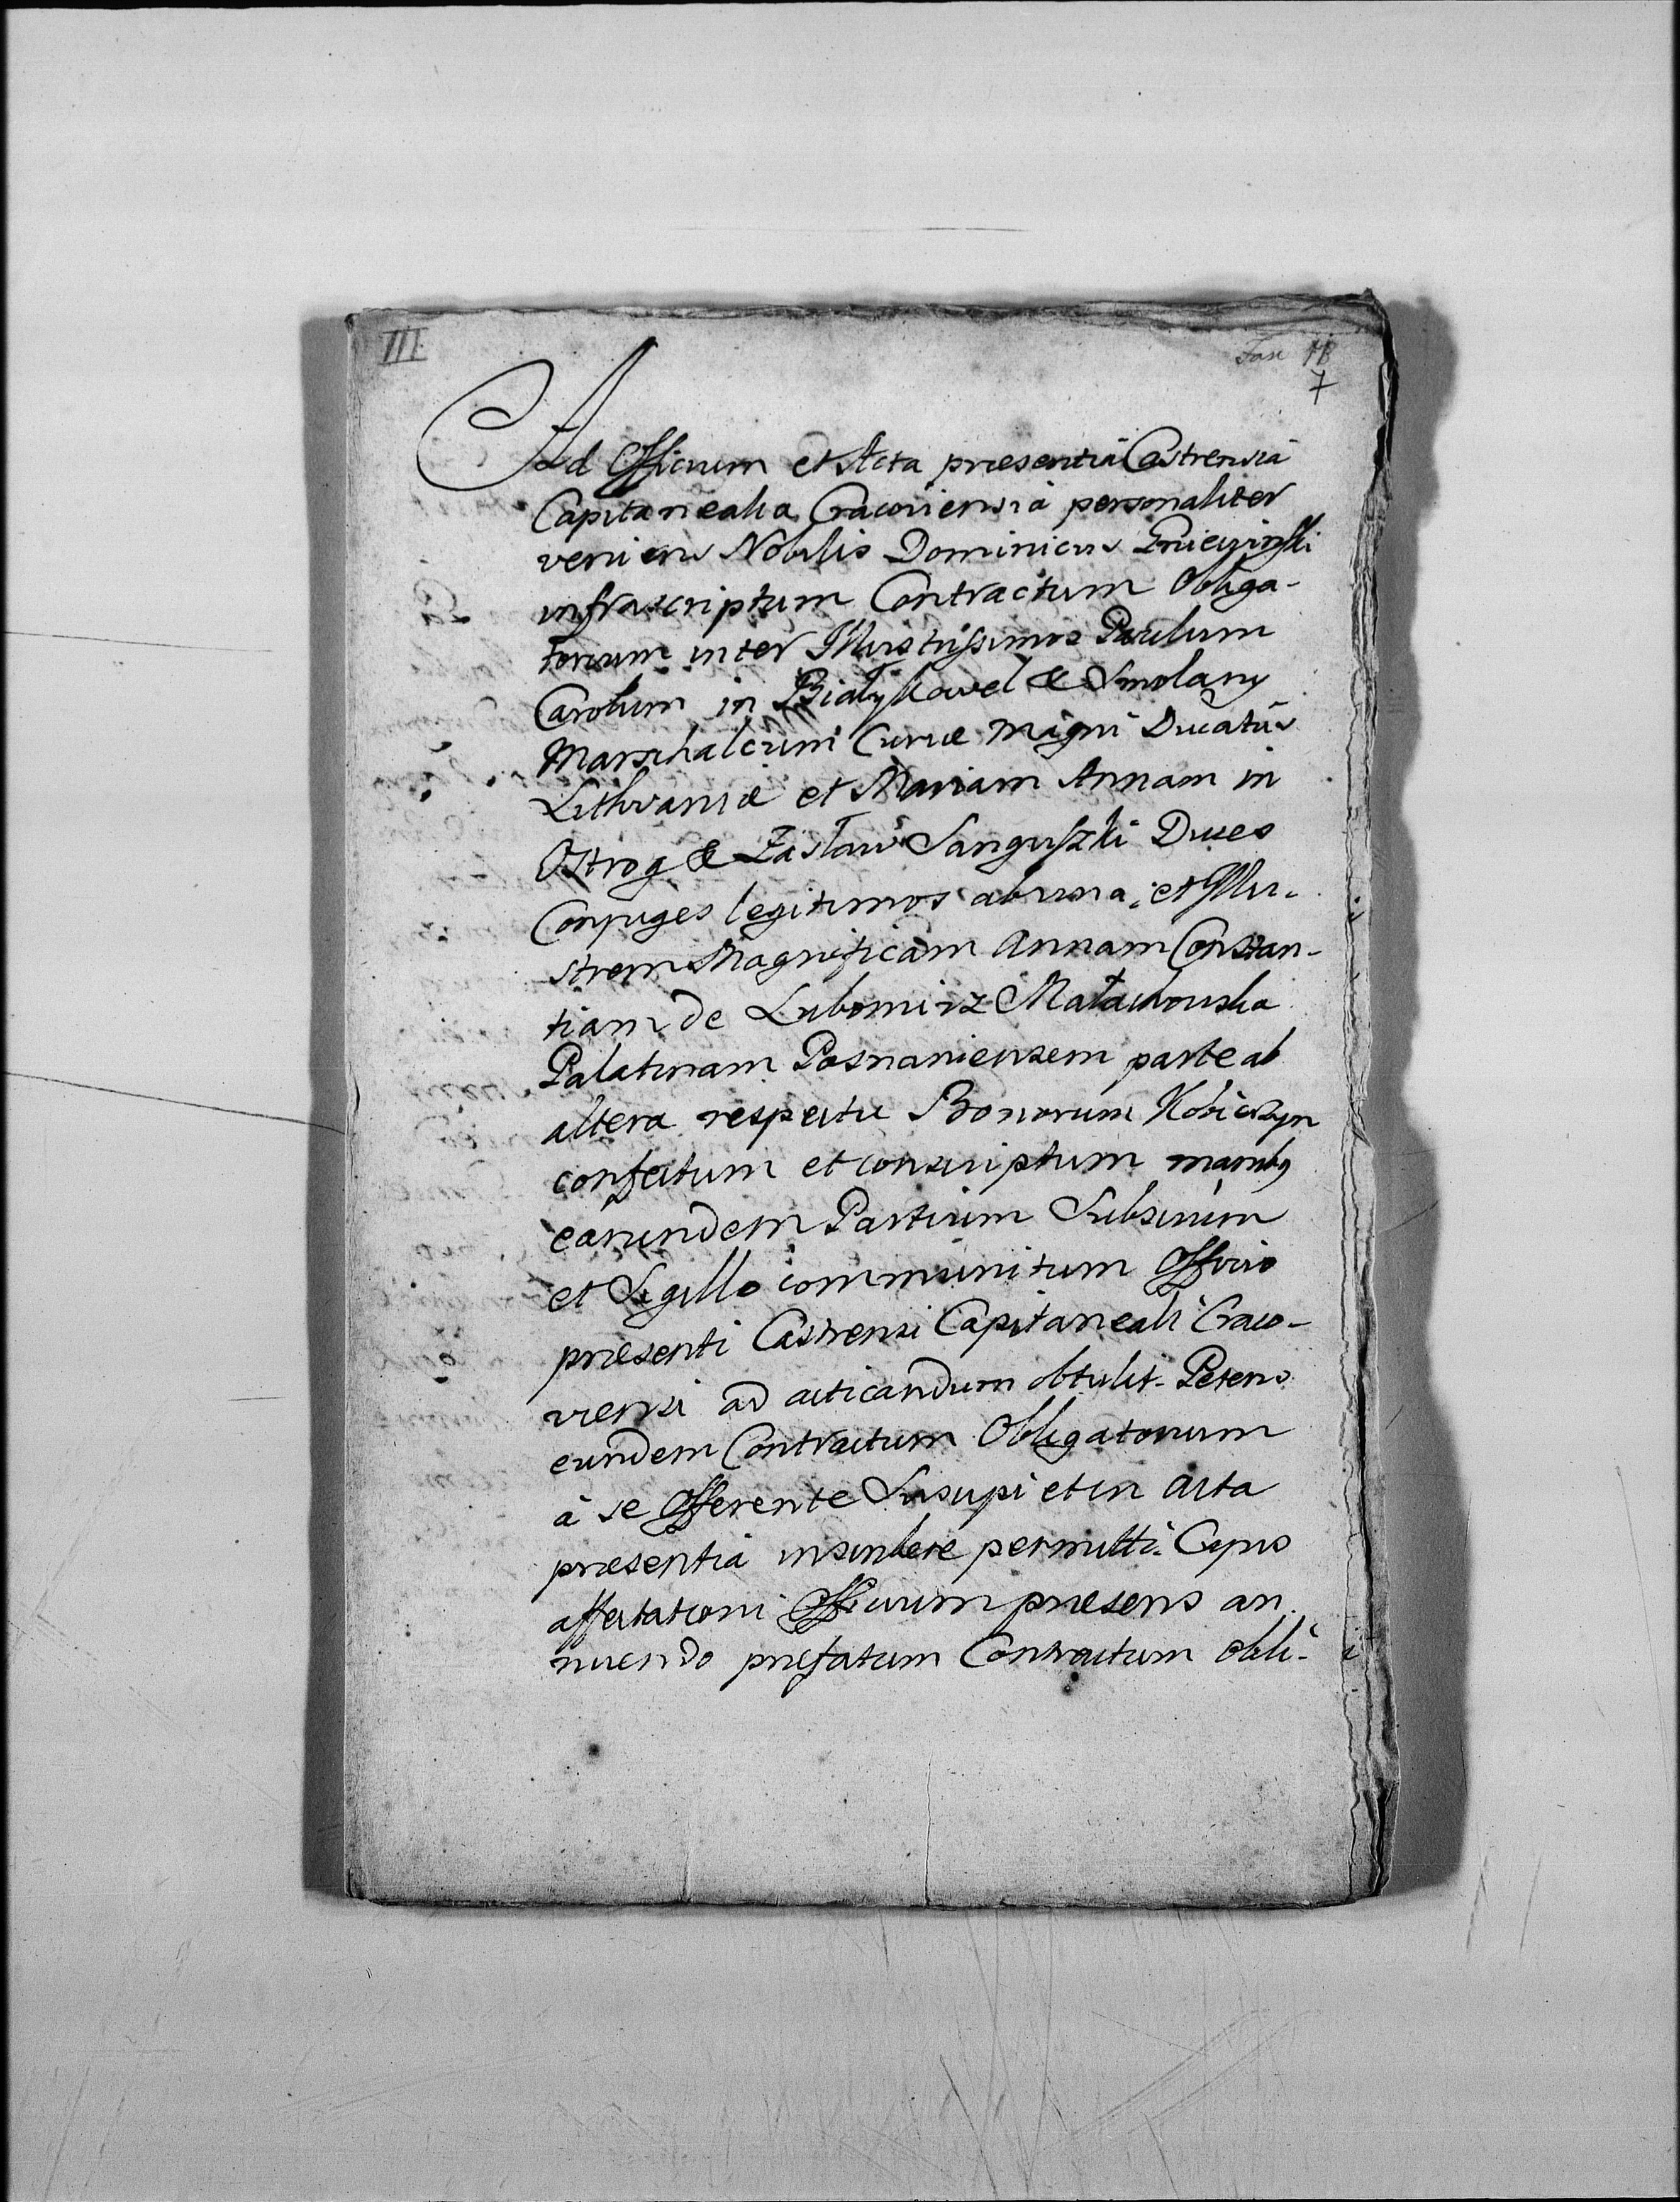 III
Fasc
7
Ad Officium et Acta præsentia Castrensia
Capitanealia Cracoviensia personaliter
veniens Nobilis Dominicus
infrascriptum Contractum Obliga-
torium inter Illustrissimos Paulum
Carolum in Białykowel & Smolany
Marschalcum Curiæ Magni Ducatûs
Lithvaniæ et Mariam Annam in
Ostrog & Zasław Sanguszki Duces
Conjuges legitimos ab una, et Illu-
strem Magnificam Annam Constan-
tiam de Lubomirz Małachowska
Palatinam Posnaniensem parte ab
altera respectu Bonorum Kobierzyn
confectum et conscriptum manibus
earundem Partium Subscrium
et Sigillo communitum Officio
præsenti Castrensi Capitaneali Craco-
viensi ad acticandum obtulit. Petens
eundem Contractum Obligatorium
à se Offerente Suscipi et in Acta
præsentia inscribere permitti. Cujus
affectationi Officium præsens an-
nuendo præfatum Contractum obli-